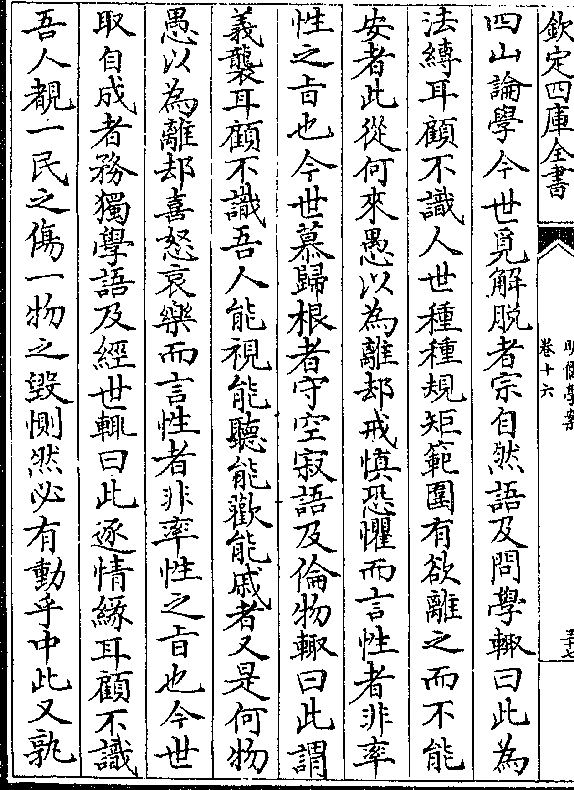 欽定四庫全書
明儒學案
卷十六
四山論學今世覓解脫者宗自然語及問學輙曰此為
法縳耳顧不識人世種種規矩範圍有欲離之而不能
安者此從何來愚以為離却戒慎恐懼而言性者非率
性之旨也今世慕歸根者守空寂語及倫物輙曰此謂
義襲耳顧不識吾人能視能聽能歡能戚者又是何物
愚以為離却喜怒哀樂而言性者非率性之旨也今世
取自成者務獨學語及經世輙曰此逐情緣耳顧不識
吾人覩一民之傷一物之毀惻然必有動乎中此又孰